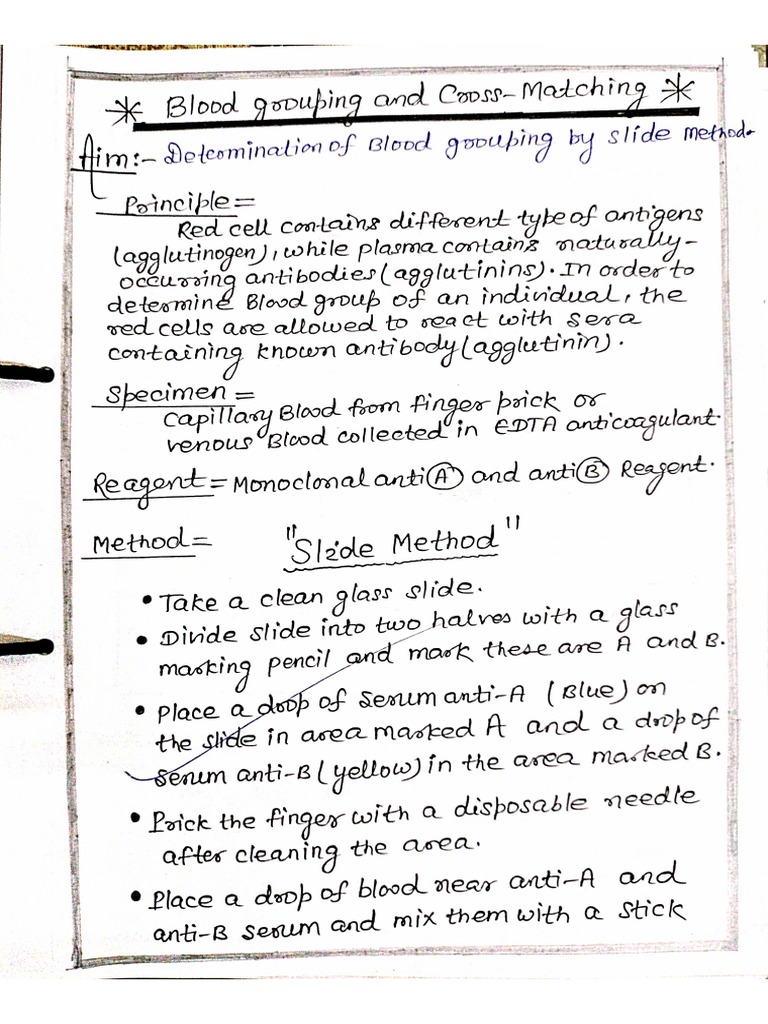 * Blood grouping and Cross-Matching *
Aim:- Determination of Blood grouping by slide method.
Principle=
Red cell contains different type of antigens
(agglutinogen), while plasma contains naturally-
occurring antibodies (agglutinins). In order to
determine Blood group of an individual, the
red cells are allowed to react with sera
containing known antibody (agglutinin).
Specimen=
Capillary Blood from finger prick or
venous Blood collected in EDTA anticoagulant.
Reagent= Monoclonal anti A and anti B Reagent.
Method= "Slide Method"
• Take a clean glass slide.
• Divide slide into two halves with a glass
marking pencil and mark these are A and B.
• Place a drop of serum anti-A (Blue) on
the slide in area marked A and a drop of
serum anti-B (yellow) in the area marked B.
• Prick the finger with a disposable needle
after cleaning the area.
• Place a drop of blood near anti-A and
anti-B serum and mix them with a stick